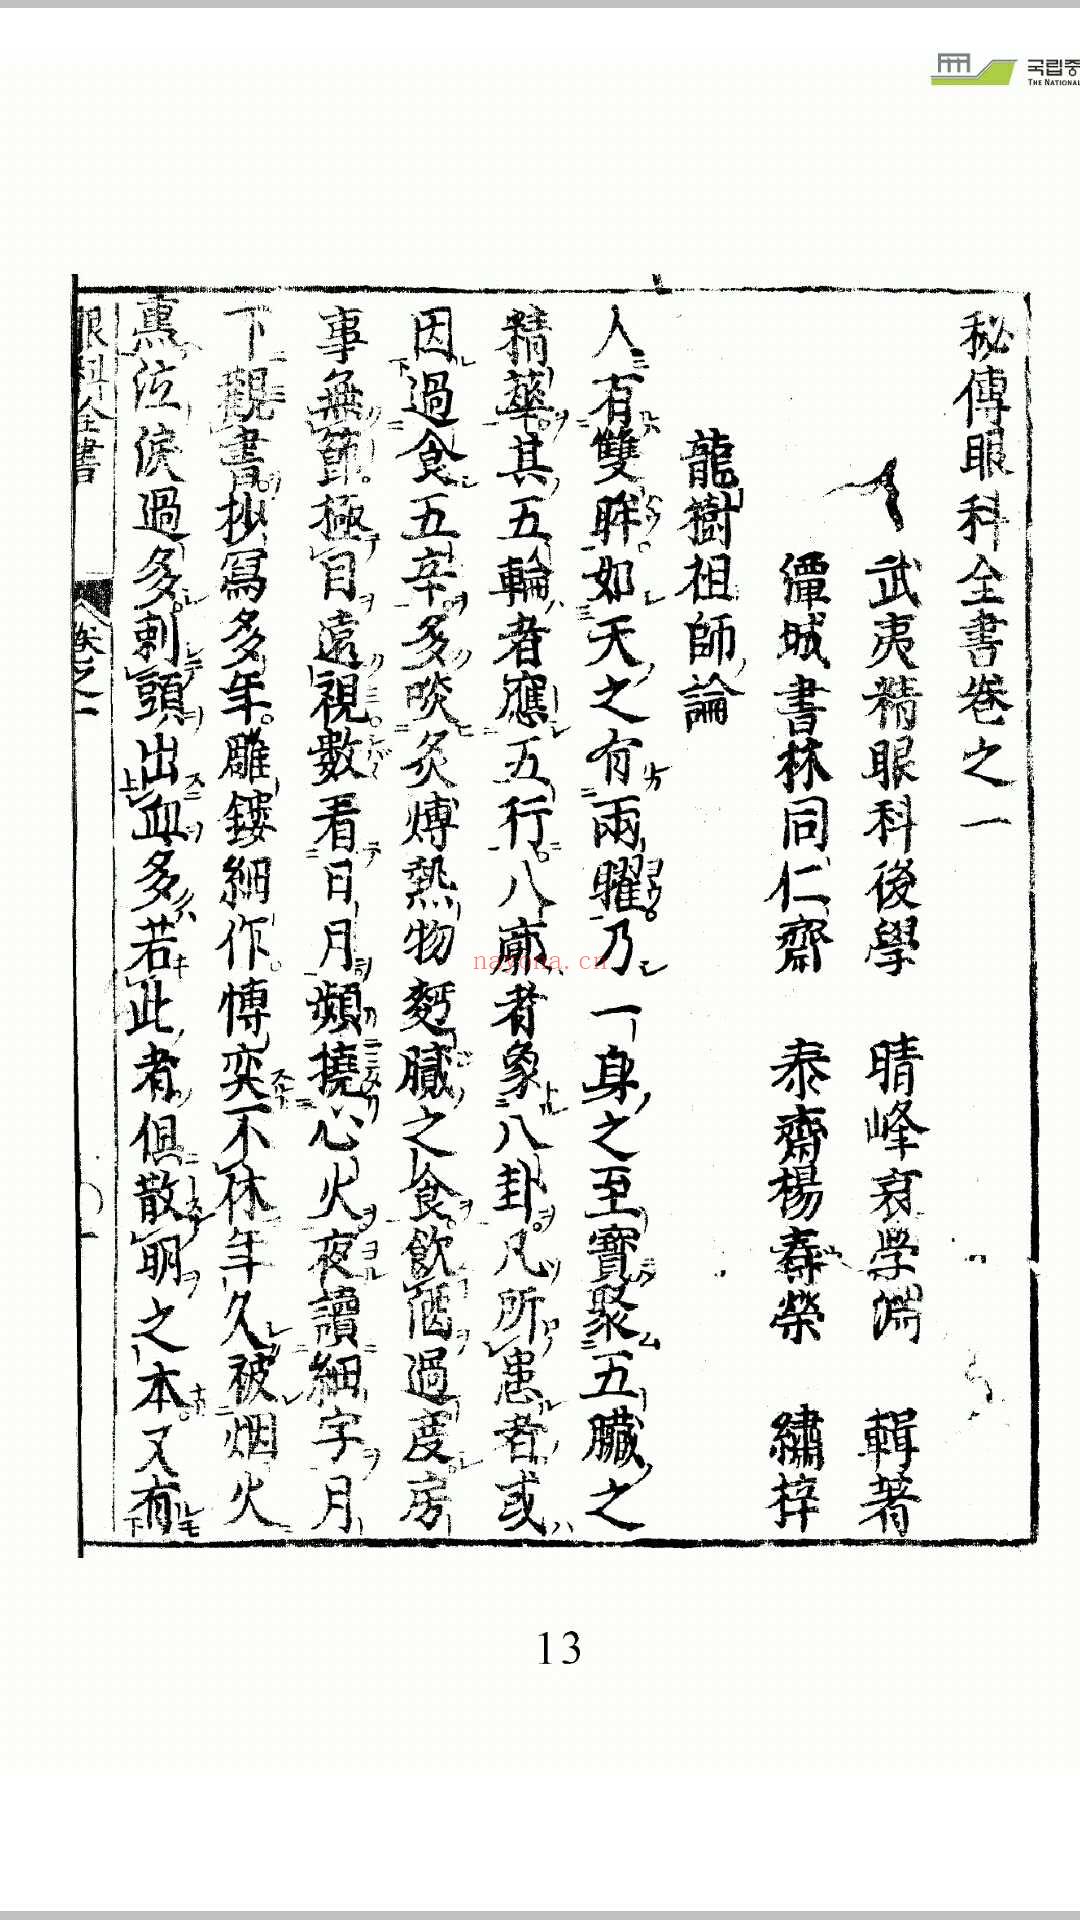 국립중
THE NATIONAL
秘傳眼科全書卷之一
武夷精眼科後學 晴峰袁學淵 輯著
潭城書林同仁齋 泰齋楊春榮 繡梓
龍樹祖師論
人有雙眸如天之有兩曜乃一身之至寶聚五臟之
精華其五輪者應五行八廓者象八卦凡所患者或
因過食五辛多啖炙煿熱物麪臟之食飲酒過度房
事無節極目遠視數看日月頻撓心火夜讀細字月
下觀書抄寫多年雕鏤細作博奕不休年久被烟火
熏泣淚過多刺頭出血多若此者俱散明之本又有
眼科全書 卷之一
nayona.cn
13